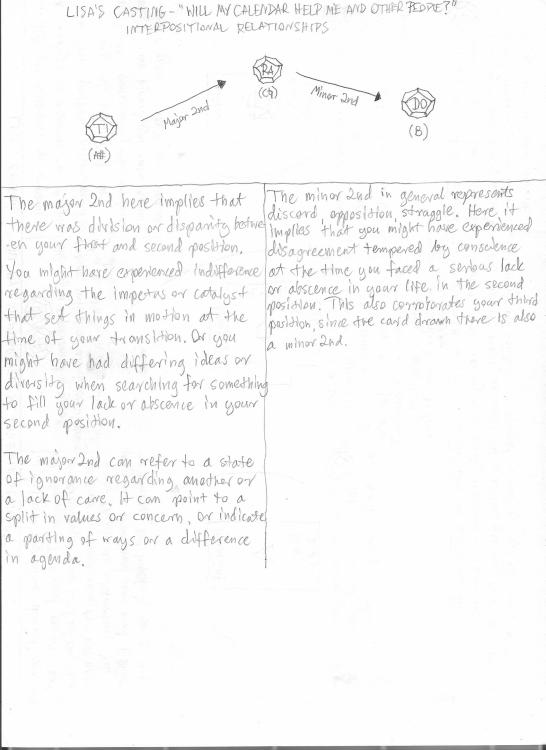 LISA'S CASTING - "WILL MY CALENDAR HELP ME AND OTHER PEOPLE?"
INTERPOSITIONAL RELATIONSHIPS
RA
(C#)
Major 2nd
Minor 2nd
TI
(A#)
DO
(B)
The major 2nd here implies that
there was division or disparity betwe
-en your first and second position.
You might have experienced indifference
regarding the impetus or catalyst
that set things in motion at the
time of your transition. Or you
might have had differing ideas or
diversity when searching for something
to fill your lack or abscence in your
second position.
The major 2nd can refer to a state
of ignorance regarding another or
a lack of care. It can point to a
split in values or concern, or indicate
a parting of ways or a difference
in agenda.
The minor 2nd in general represents
discord, opposition, struggle. Here, it
implies that you might have experienced
disagreement tempered by conscience
at the time you faced a serious lack
or abscence in your life, in the second
position. This also corroborates your third
position, since the card drawn there is also
a minor 2nd.